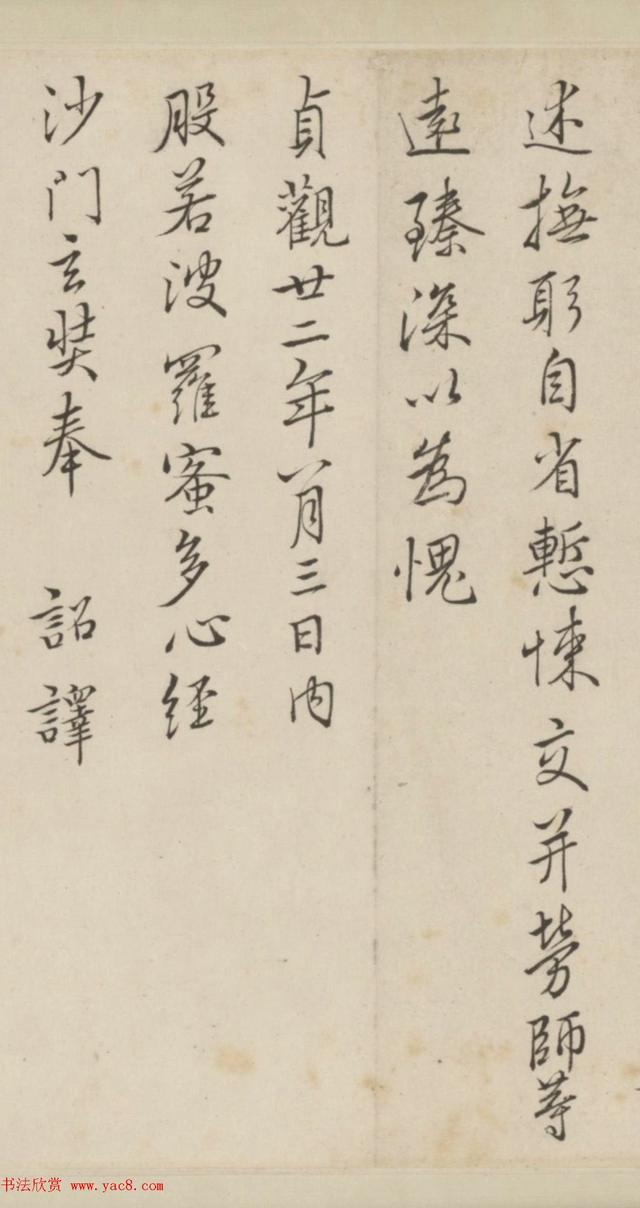 述撫躬自省慙悚交并勞師等
遠臻深以為愧
貞觀廿二年八月三日內
般若波羅蜜多心經
沙門玄奘奉 詔譯
书法欣赏 www.yac8.com